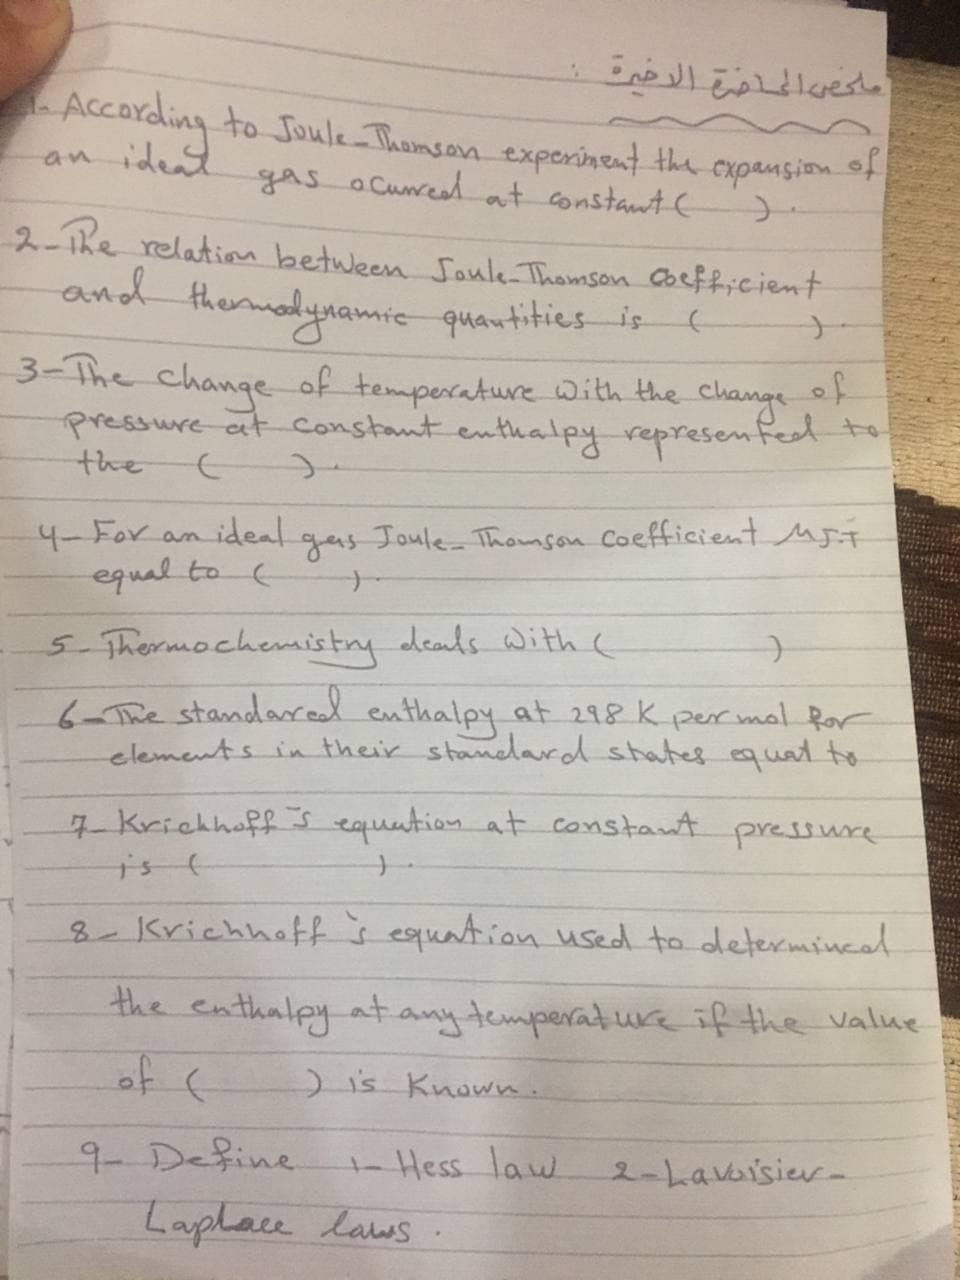 ملخص المحاضرة الاخيرة :
1- According to Joule-Thomson experiment the expansion of
an ideal gas ocurred at constant ( ).
2- The relation between Joule-Thomson coefficient
and thermodynamic quantities is ( ).
3- The change of temperature with the change of
pressure at constant enthalpy represented to
the ( ).
4- For an ideal gas Joule-Thomson coefficient μJ.T
equal to ( ).
5- Thermochemistry deals with ( )
6- The standared enthalpy at 298 K per mol for
elements in their standard states equal to
7- Krichhoff's equation at constant pressure
is ( ).
8- Krichhoff's equation used to determined
the enthalpy at any temperature if the value
of ( ) is known.
9- Define 1- Hess law 2- Lavoisier-
Laplace laws.